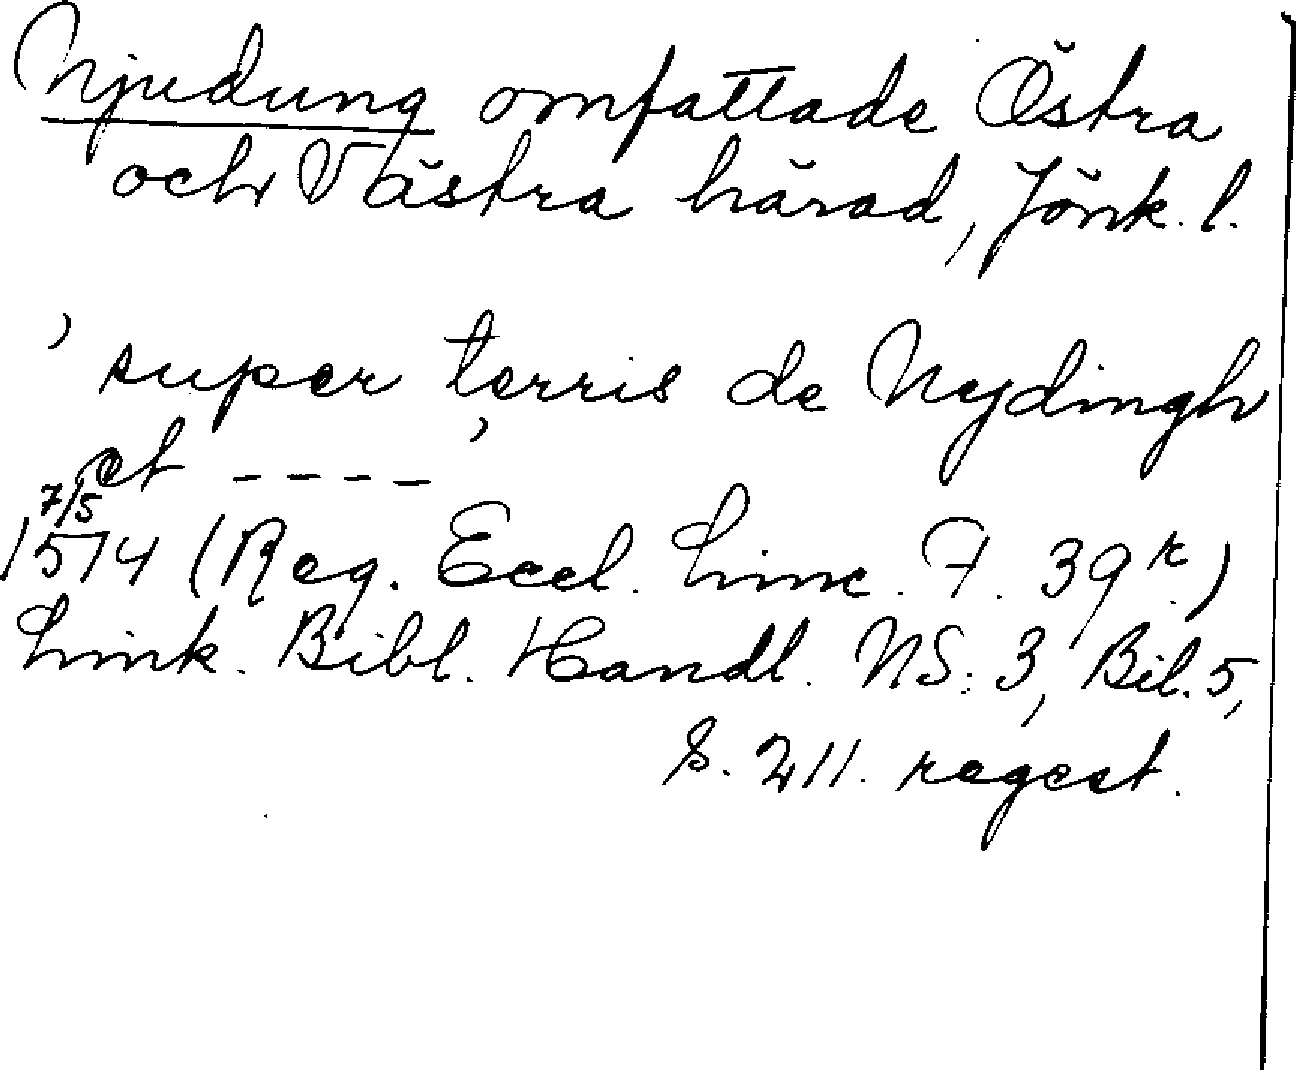 Njudung omfattade Östra
och Västra härad, Jönk. l.
’super terris de Nydingh
et ----’
7/5
1514 (Reg. Eccl. Linc. F. 39 r.)
Link. Bibl. Handl. NS: 3, Bil. 5,
s. 211. regest.